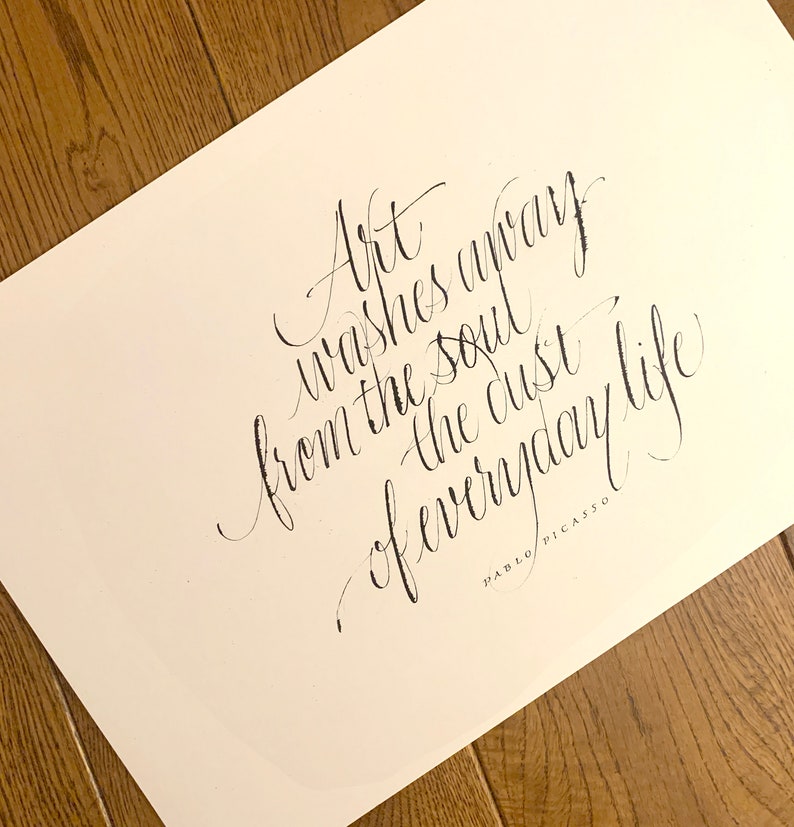 Art
washes away
from the soul
the dust
of everyday life
PABLO PICASSO